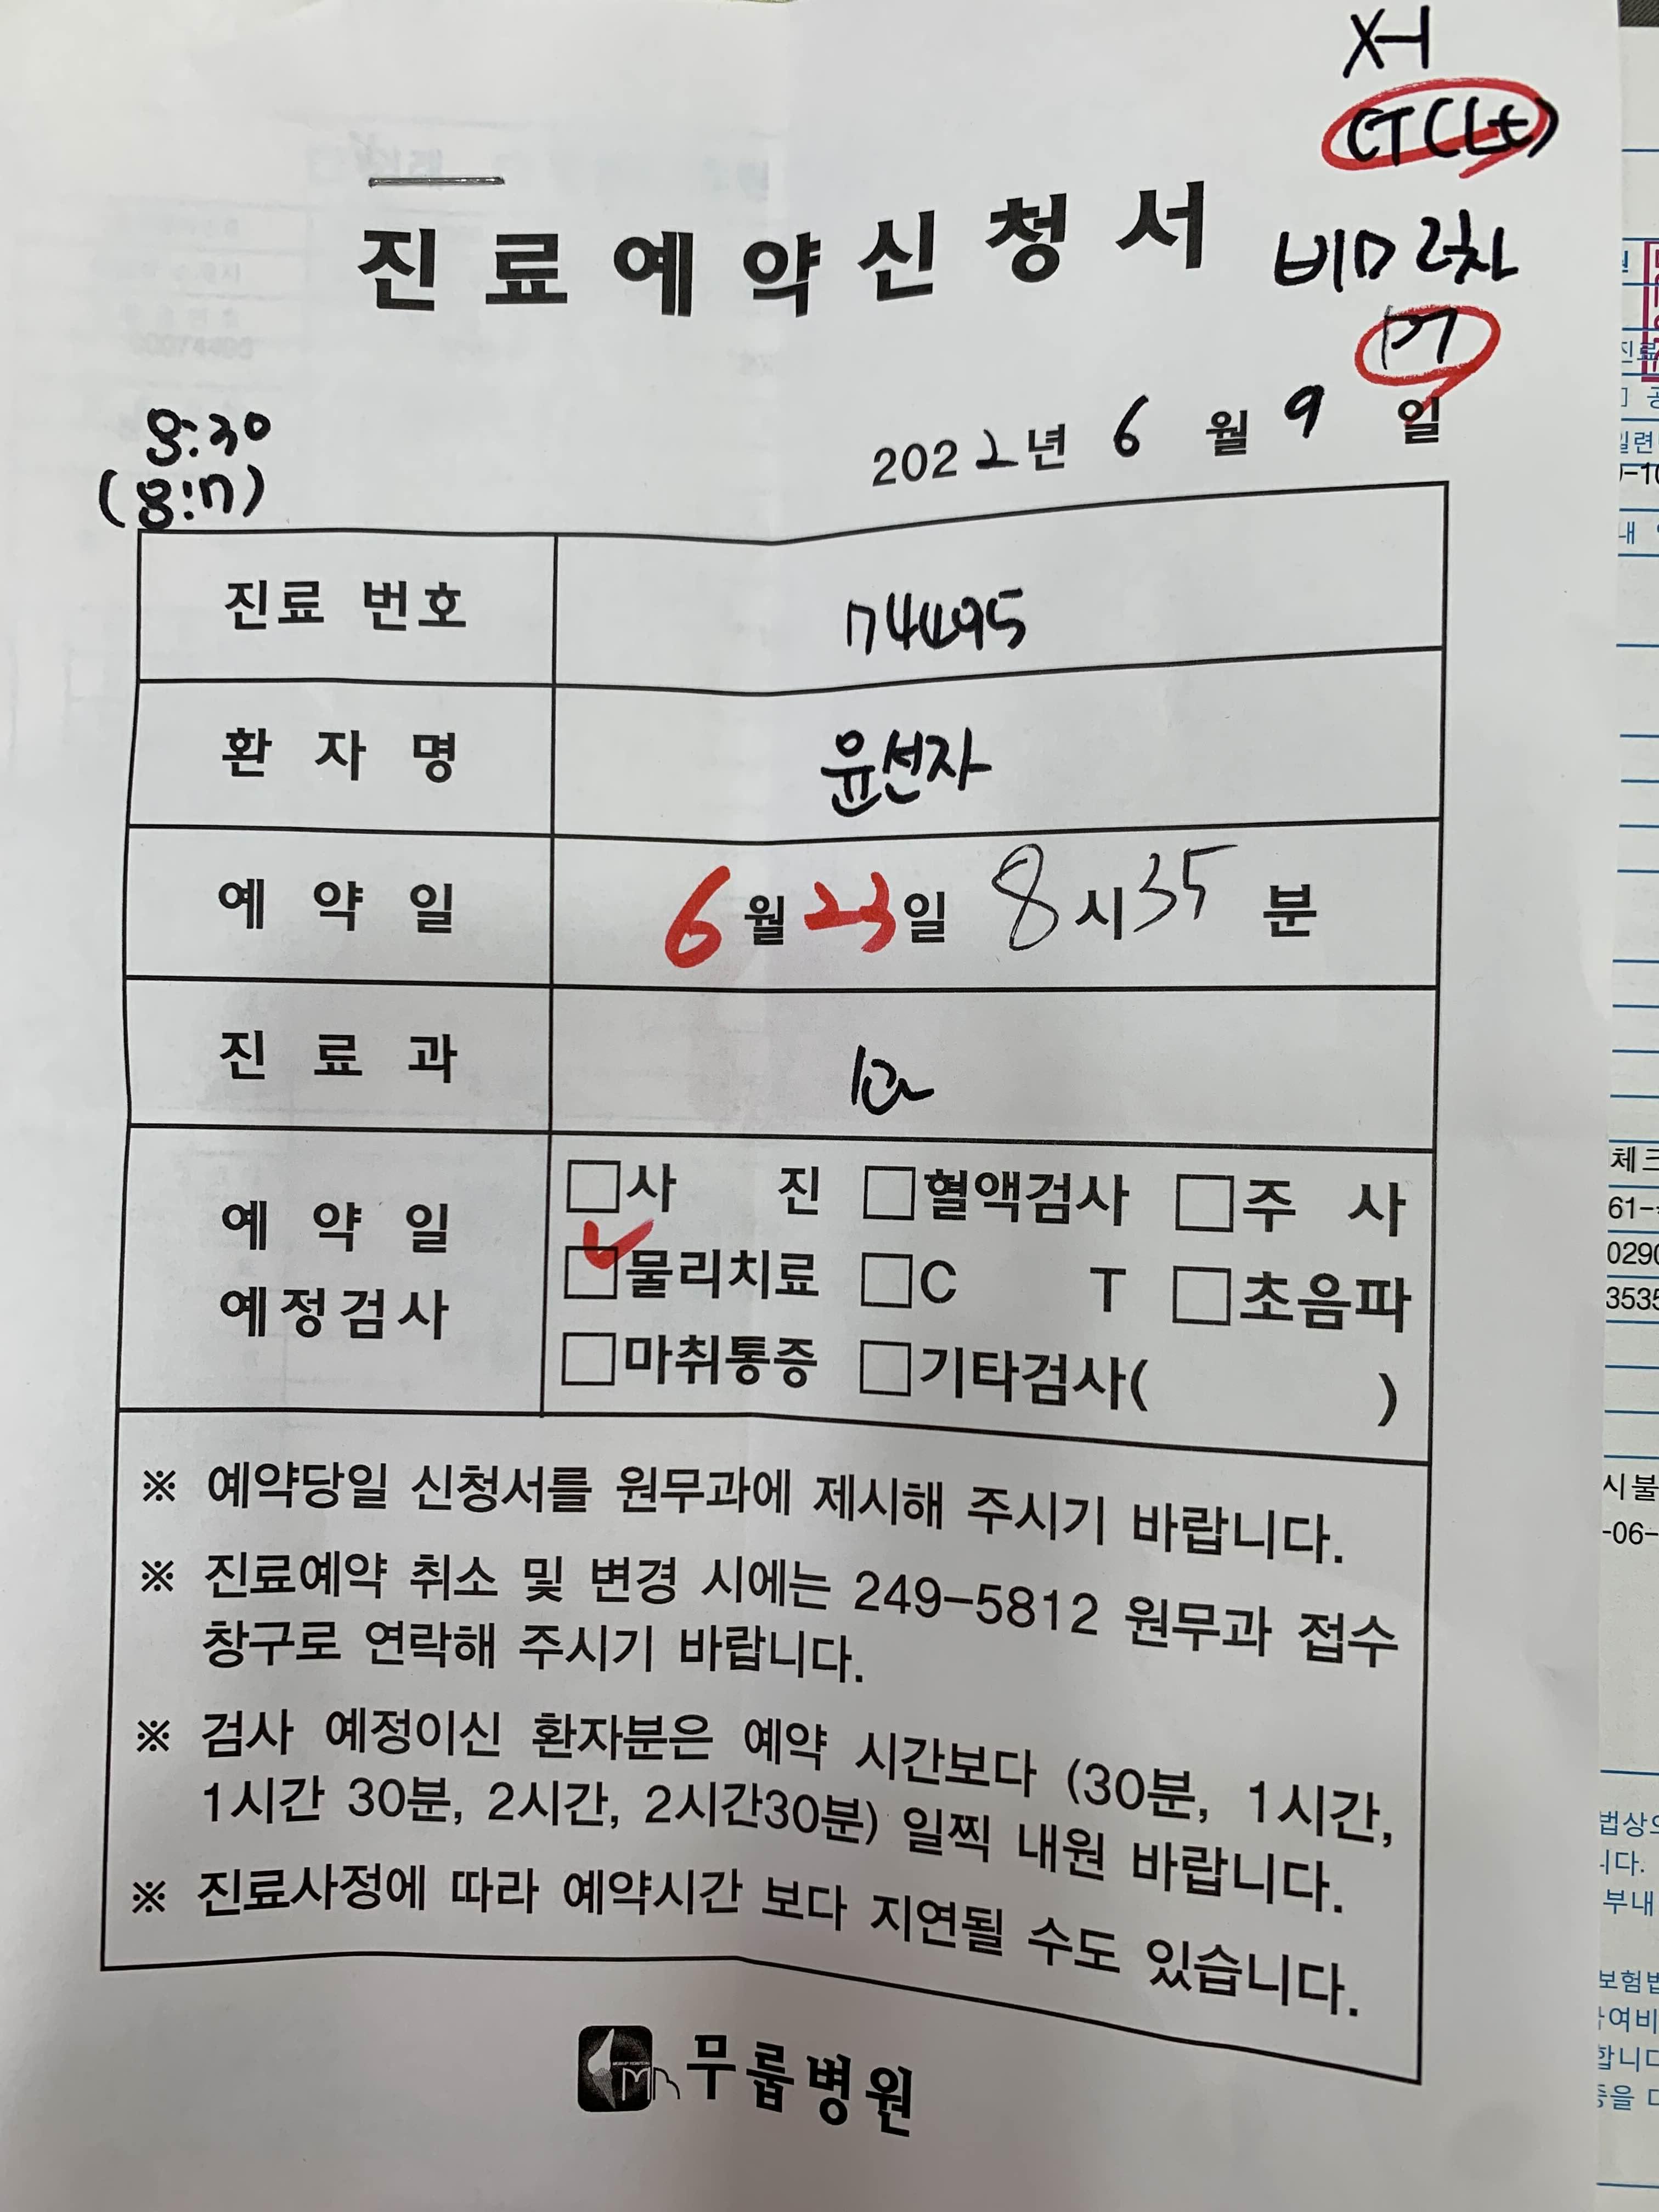 CT(Lt)
진료예약신청서
비급 2차
PT
2022년 6월 9일
8:30
진료 번호 74495
환자명 윤선자
예약일 6월 23일 8시 35분
진료과
예약일
예정검사
□사 진 □혈액검사 □주 사
□물리치료 □C T □초음파
□마취통증 □기타검사( )
※ 예약당일 신청서를 원무과에 제시해 주시기 바랍니다.
※ 진료예약 취소 및 변경 시에는 249-5812 원무과 접수
창구로 연락해 주시기 바랍니다.
※ 검사 예정이신 환자분은 예약 시간보다 (30분, 1시간,
1시간 30분, 2시간, 2시간30분) 일찍 내원 바랍니다.
※ 진료사정에 따라 예약시간 보다 지연될 수도 있습니다.
무릎병원
체크
61-
0290
3535
-06-